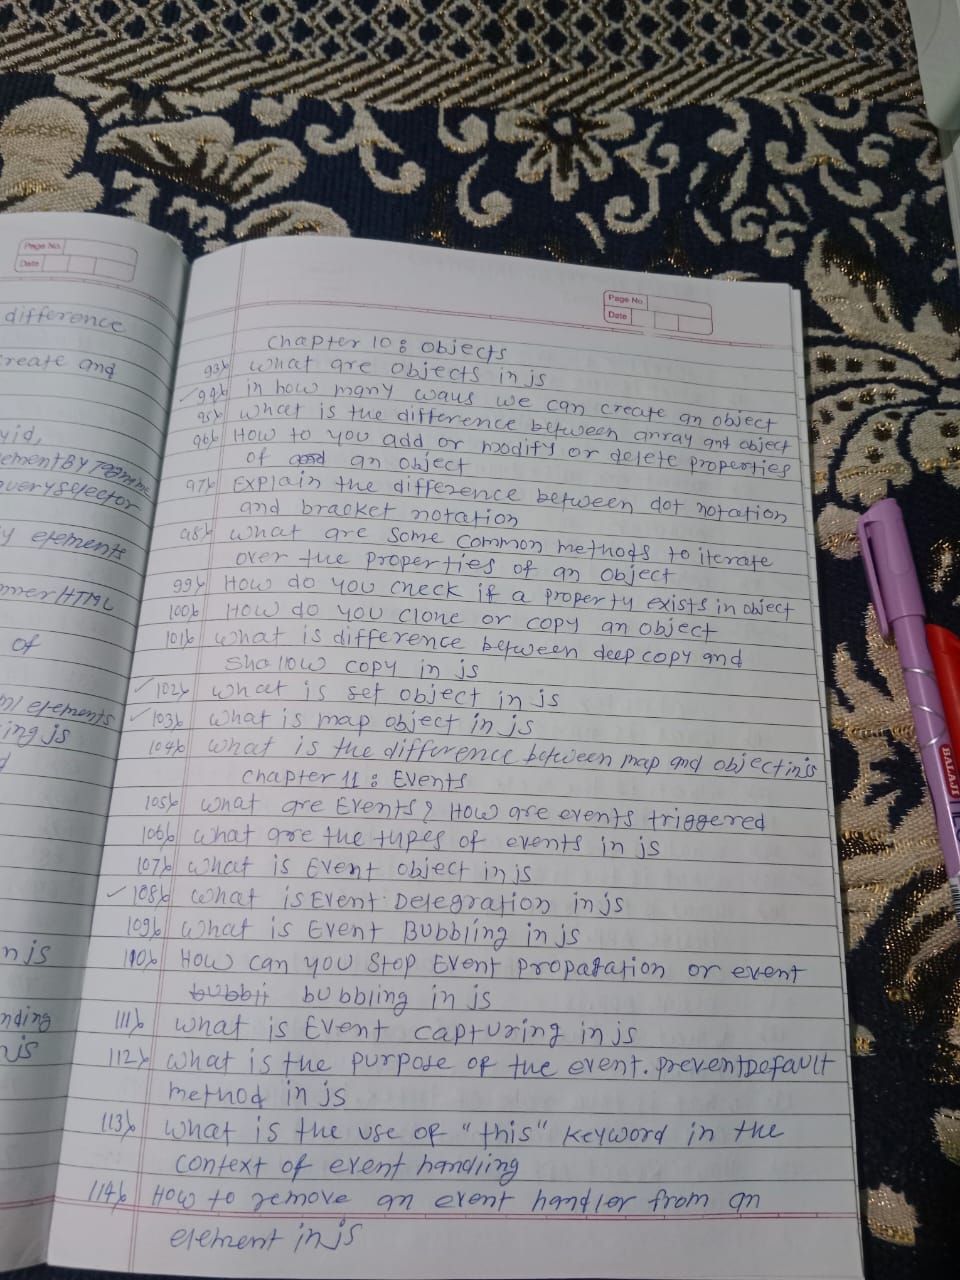 Page No.
Date
difference
create and
yid,
ementBy Tagname
queryselector
y elements
nnerHTML
of
ml elements
ing js
n js
nding
n js
Page No.
Date
Chapter 10 : Objects
93) what are objects in js
94) in how many ways we can create an object
95) what is the difference between array and object
96) How to you add or modify or delete properties
of an object
97) Explain the difference between dot notation
and bracket notation
98) what are some common methods to iterate
over the properties of an object
99) How do you check if a property exists in object
100) How do you clone or copy an object
101) what is difference between deep copy and
shallow copy in js
102) what is set object in js
103) what is map object in js
104) what is the difference between map and object in js
Chapter 11 : Events
105) what are Events? How are events triggered
106) what are the types of events in js
107) what is Event object in js
108) what is Event Delegration in js
109) what is Event Bubbling in js
110) How can you stop Event propagation or event
bubbli bubbling in js
111) what is Event capturing in js
112) what is the purpose of the event.preventDefault
method in js
113) what is the use of "this" keyword in the
context of event handling
114) How to remove an event handler from an
element in js
BALAJI